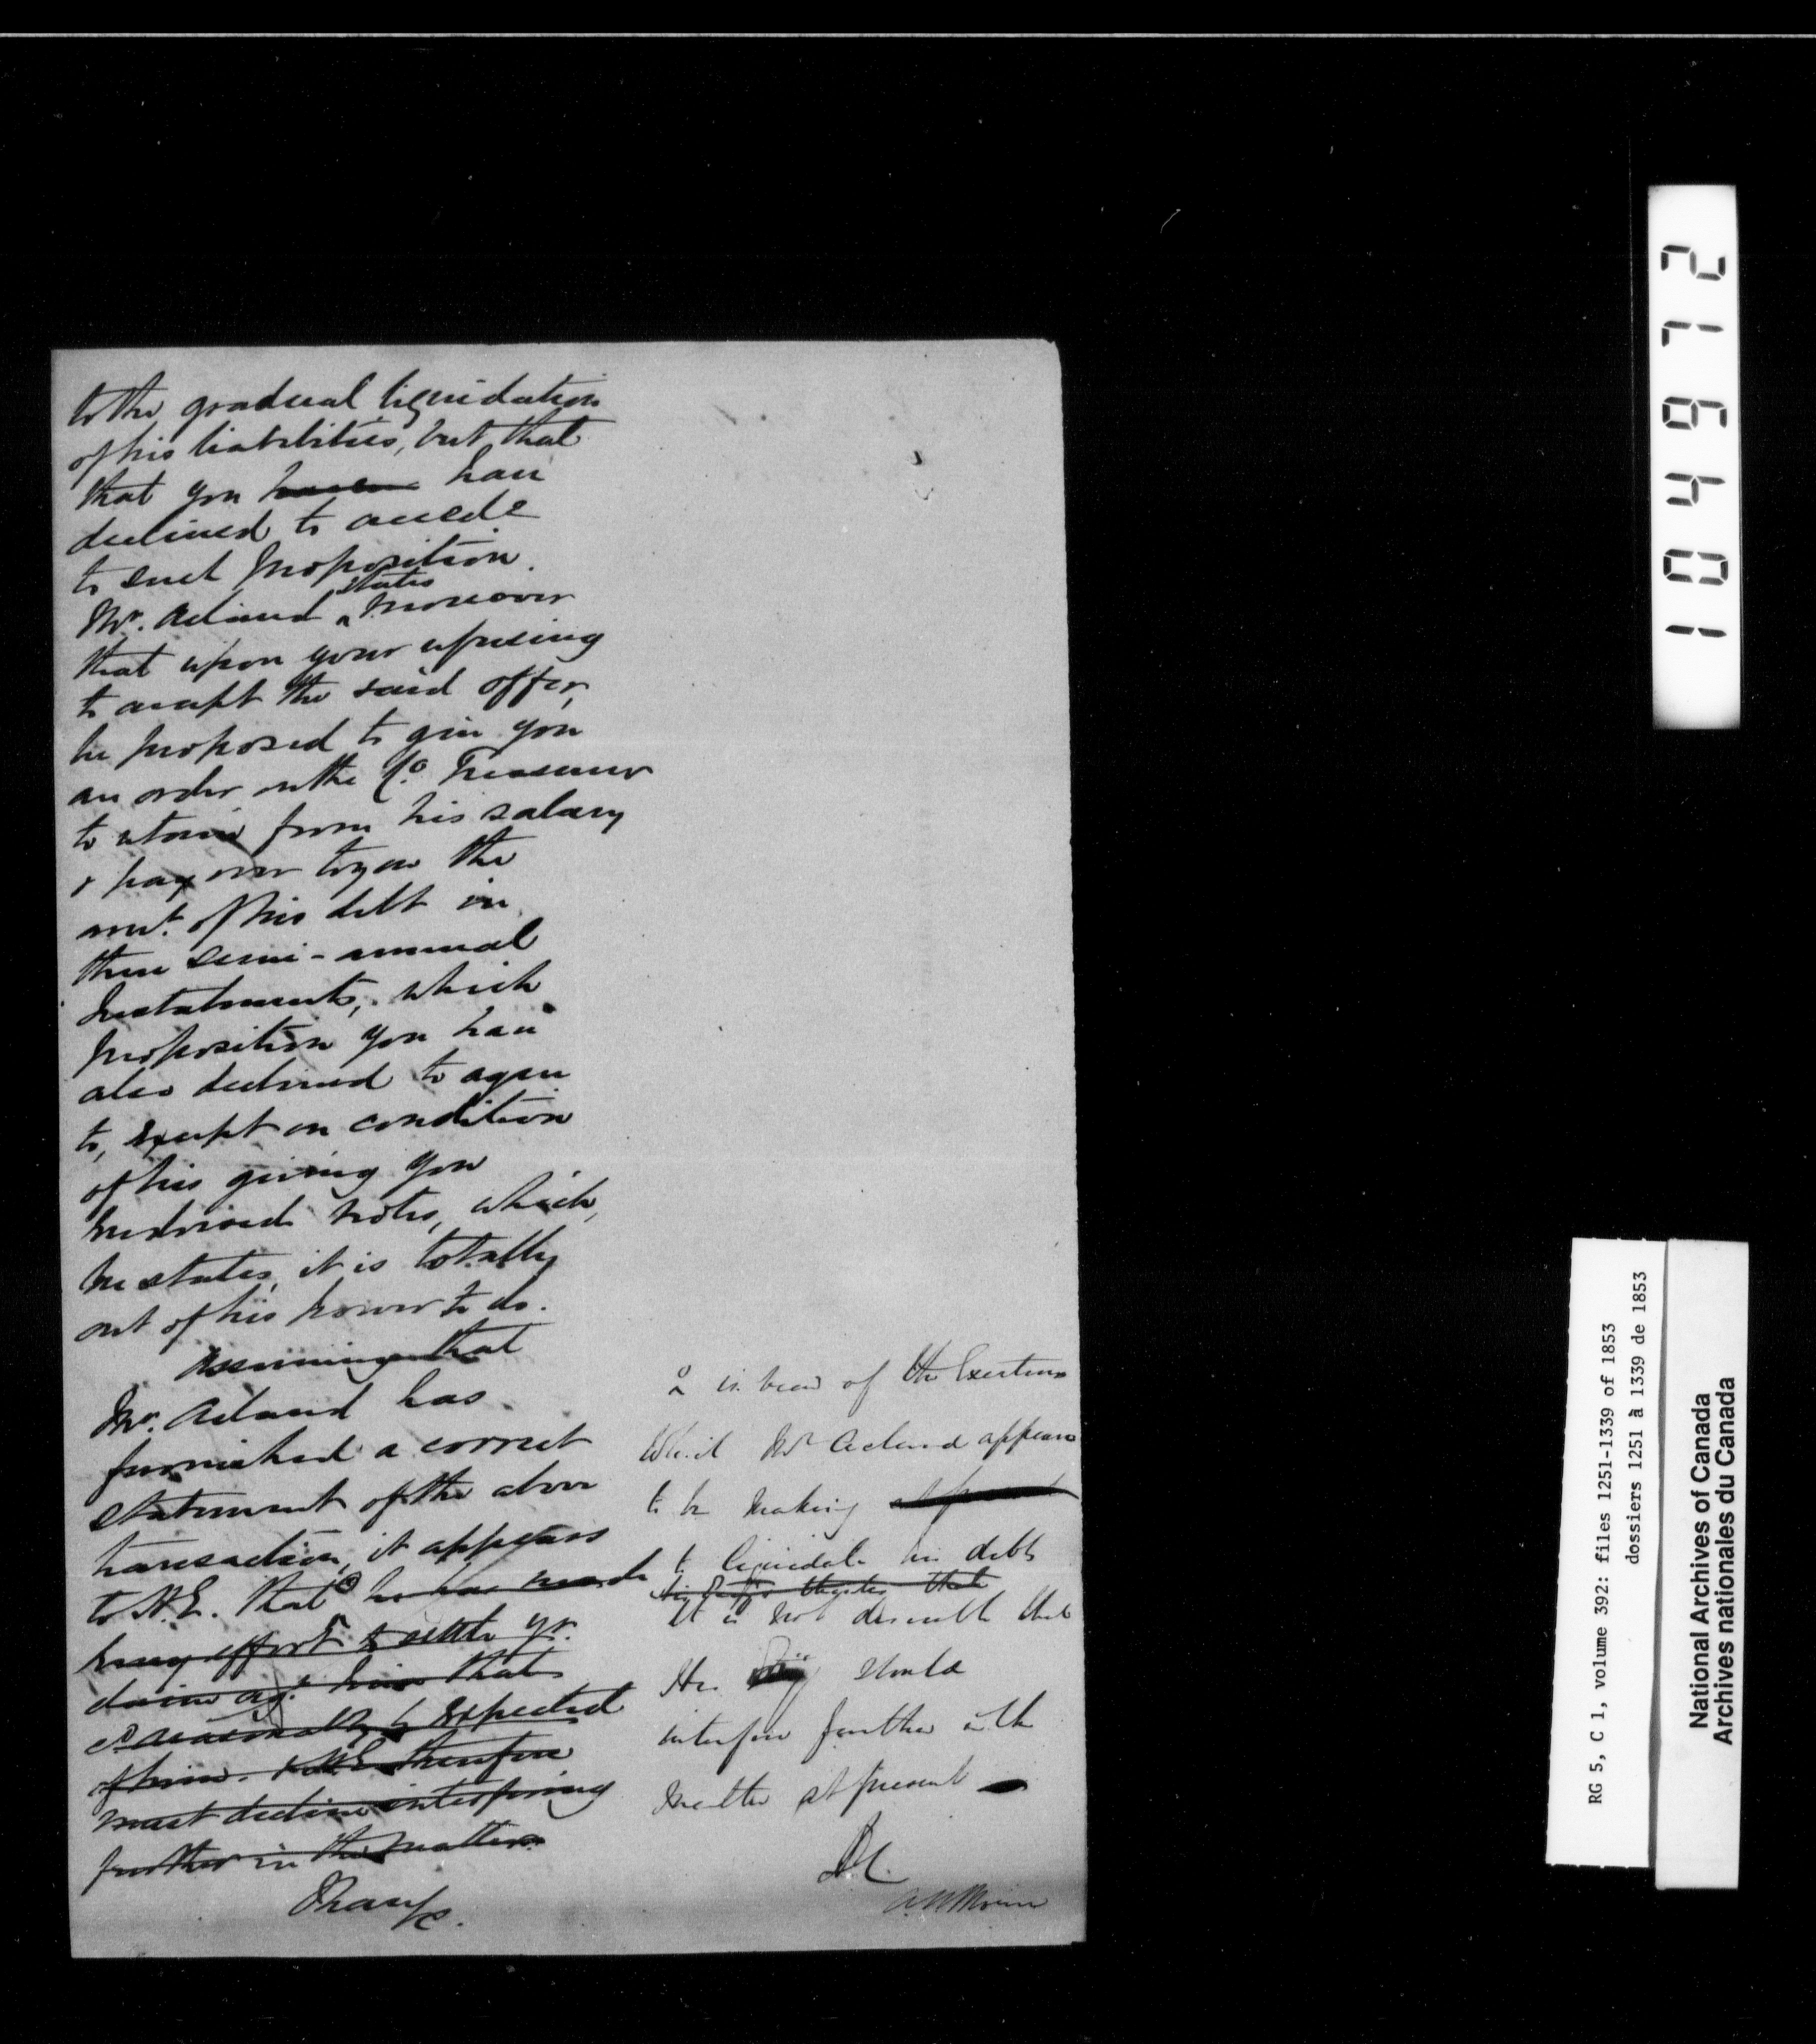 to the gradual liquidation
of his liabilities, but that
that you have have
declined to accede
to such proposition.
Mr. Acland states moreover
that upon your refusing
to accept the said offer,
he proposed to give you
an order on the Co. Treasurer
to retain from his salary
& pay over to you the
amt. of his debt in
three semi-annual
Instalments, which
proposition you have
also declined to agree
to, except on condition
of his giving you
endorsed notes, which,
he states, it is totally
out of his power to do.
Assuming that
Mr. Acland has
furnished a correct
statement of the above
transaction, it appears
to H.E. that he has made
every effort to settle yr.
claim agt. him that
is reasonably to be expected
of him. & H.E. therefore
must decline interfering
further in the matter.
I have &c.
in view of the Exertions
which Mr Acland appears
to be making at present
to liquidate his debts
His Exy thinks that
It is not desirable that
His Exy should
interfere further in the
matter at present
A N Morin
104972
RG 5, C 1, volume 392: files 1251-1339 of 1853
dossiers 1251 à 1339 de 1853
National Archives of Canada
Archives nationales du Canada